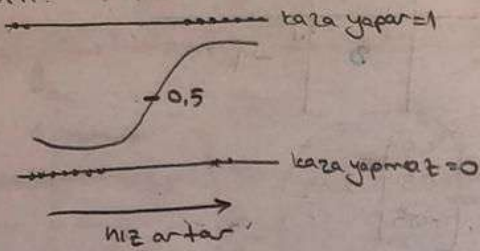 kaza yapar=1
0,5
kaza yapmaz=0
hız artar